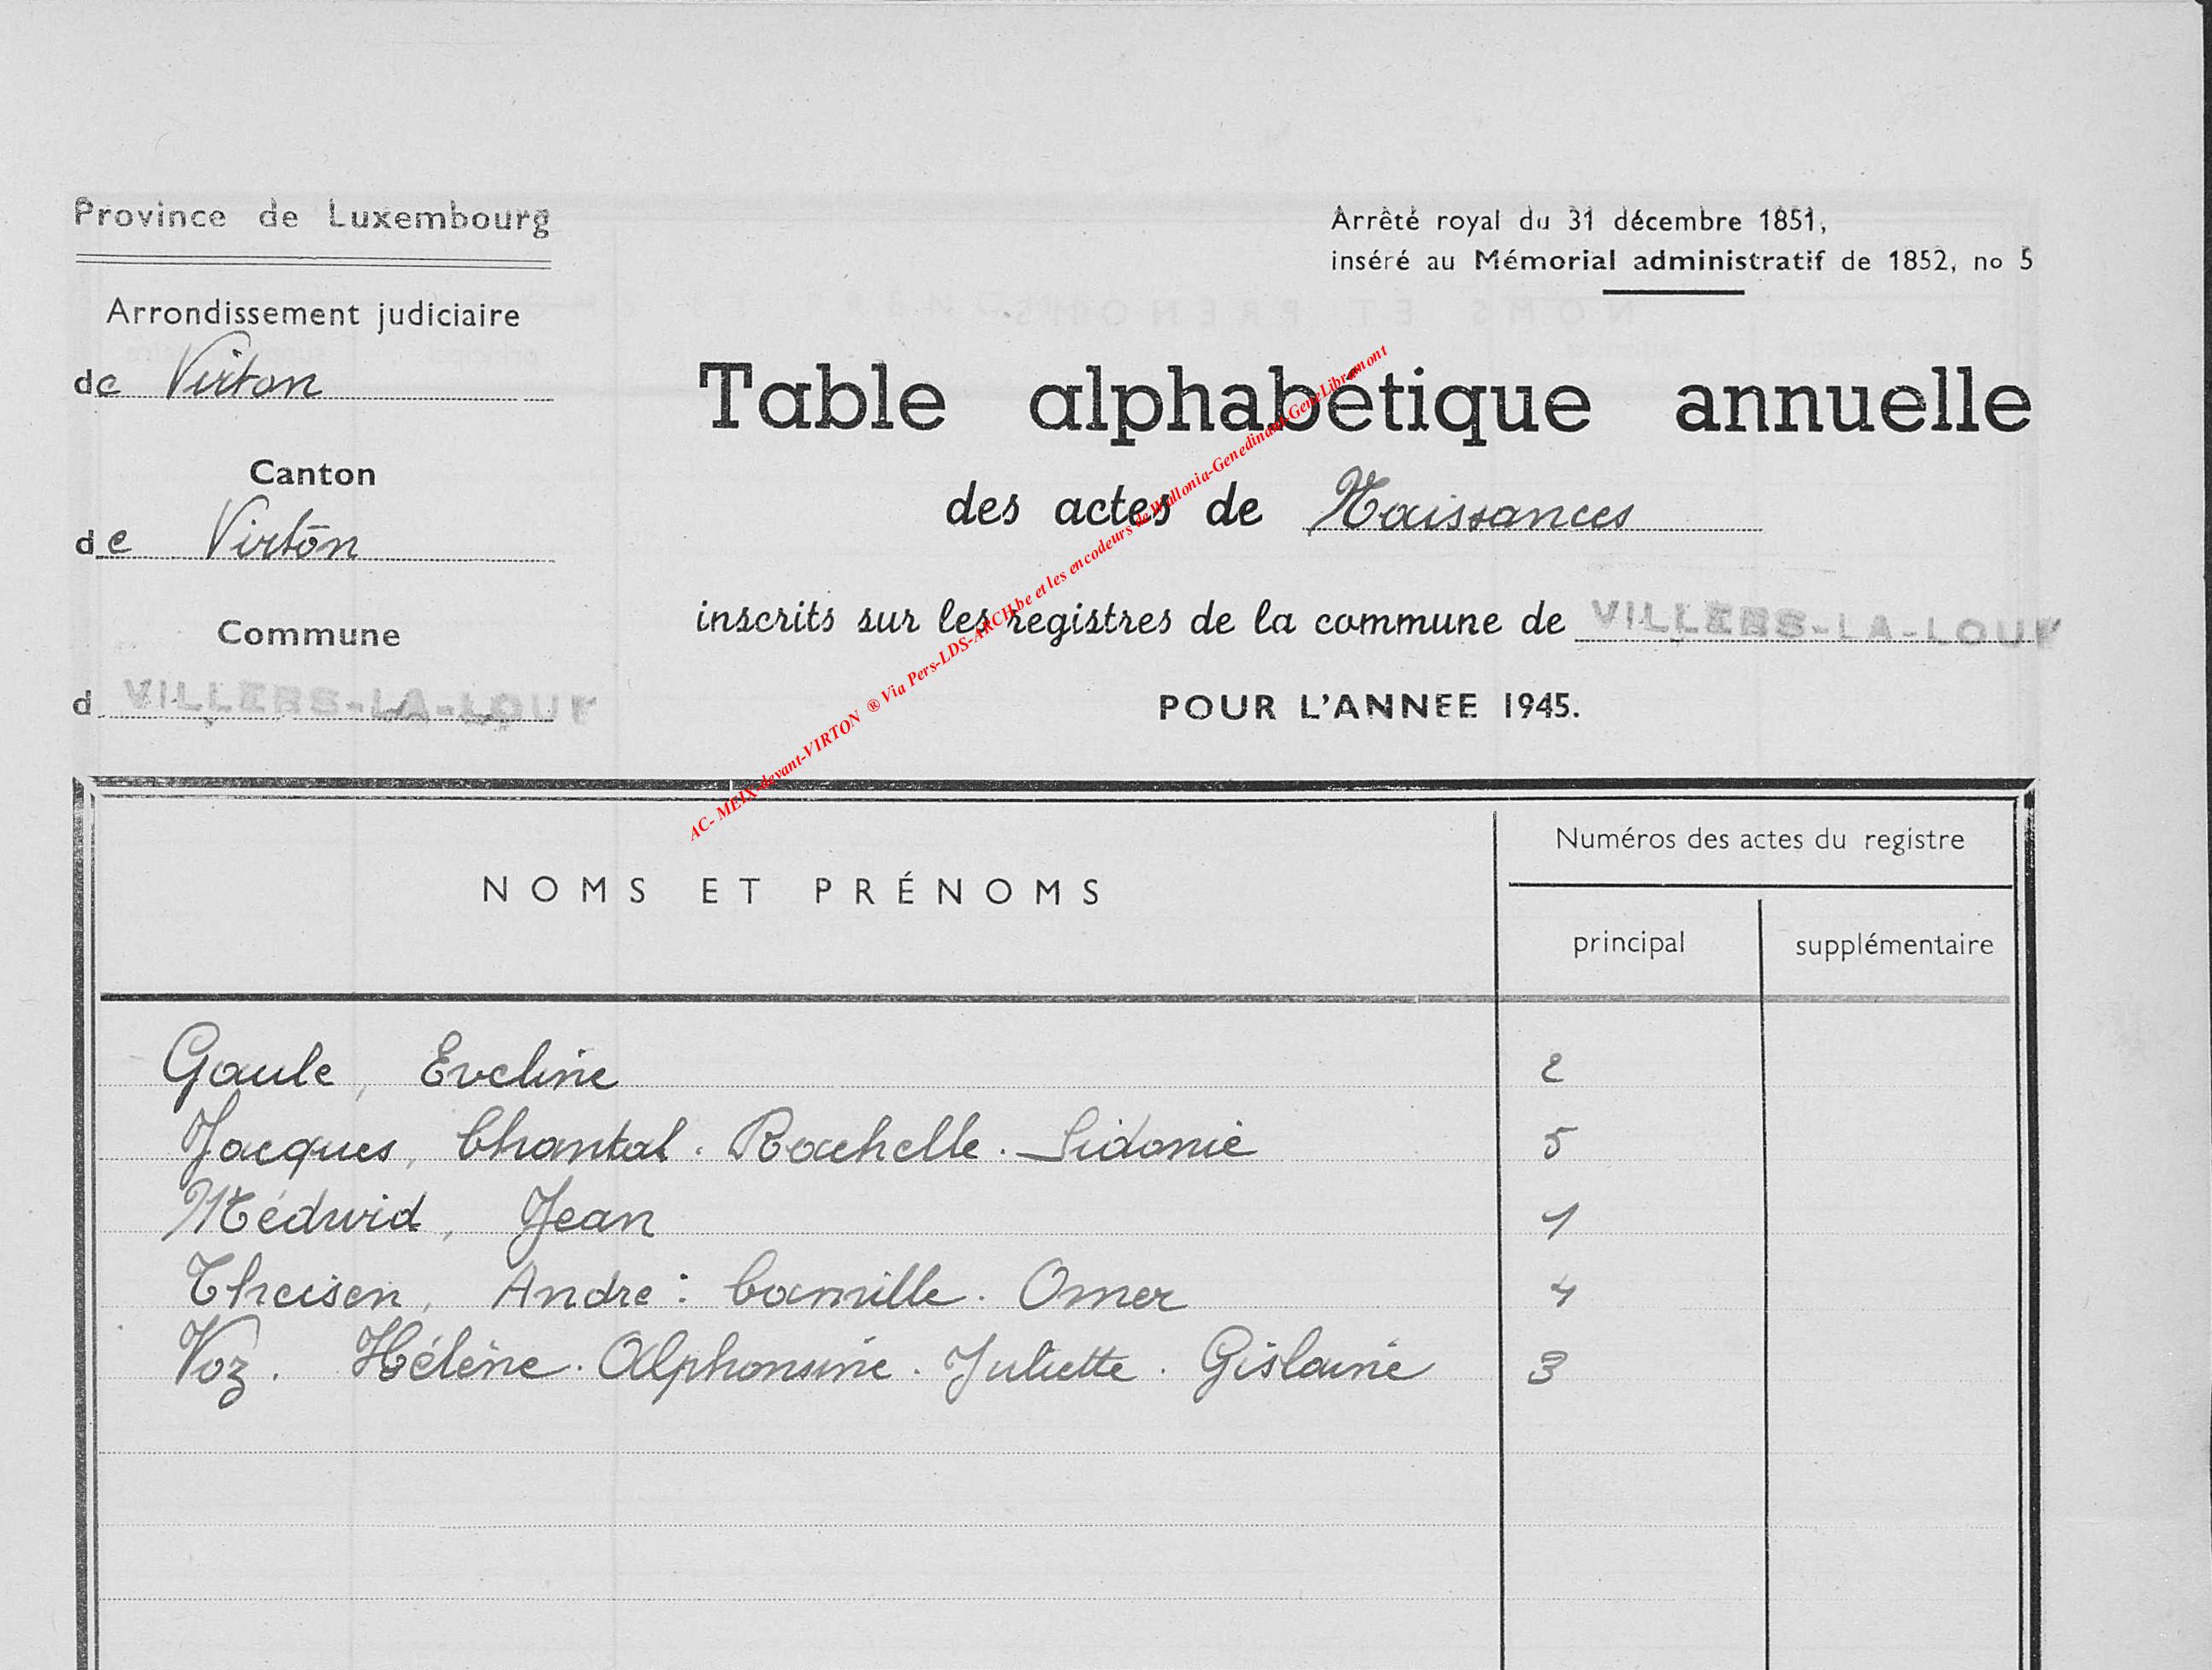 Province de Luxembourg
Arrêté royal du 31 décembre 1851,
inséré au Mémorial administratif de 1852, no 5
Arrondissement judiciaire
de Virton
Canton
de Virton
Commune
d VILLERS-LA-LOUE
Table alphabétique annuelle
des actes de Naissances
inscrits sur les registres de la commune de VILLERS-LA-LOUE
POUR L'ANNEE 1945.
AC- MEIX-devant-VIRTON ® Via Pers-LDS-ARCH.be et les encodeurs de Wallonia-Genedinant-GeneLibramont
NOMS ET PRÉNOMS
Numéros des actes du registre
principal supplémentaire
Gaule, Eveline 2
Jacques, Chantal. Rachelle. Sidonie 5
Médwid, Jean 1
Theisen, André: Camille. Omer 4
Voz. Hélène. Alphonsine. Juliette. Gislaine 3